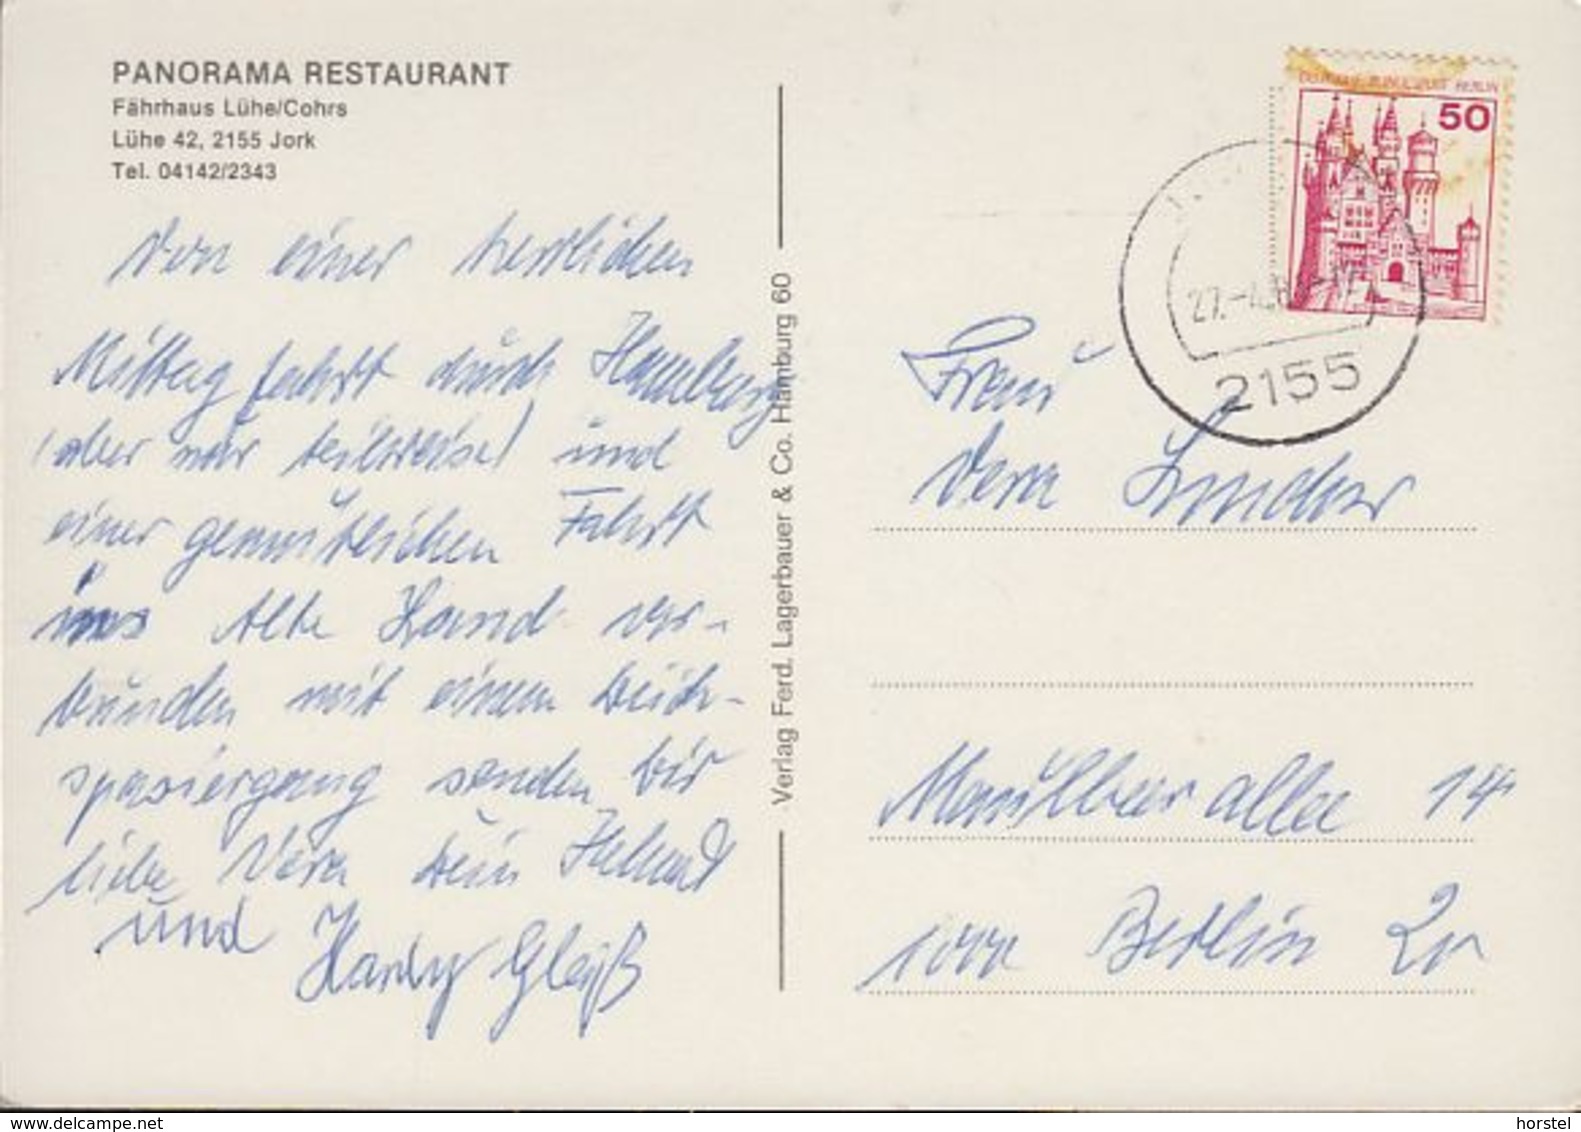 PANORAMA RESTAURANT
Fährhaus Lühe/Cohrs
Lühe 42, 2155 Jork
Tel. 04142/2343
Von einer herrlichen
Mittag fahrt durch Hamburg
(aber nur teilweise) und
einer gemütlichen Fahrt
ins Alte Land ver-
bunden mit einem Deich-
spaziergang senden Dir
liebe Vera Dein
und Hardy Gleiß
Verlag Ferd. Lagerbauer & Co. Hamburg 60
DEUTSCHE BUNDESPOST BERLIN
50
27.-4.
2155
Frau
Vera
Maulbeerallee 14
1000 Berlin 20
www.delcampe.net
horstel